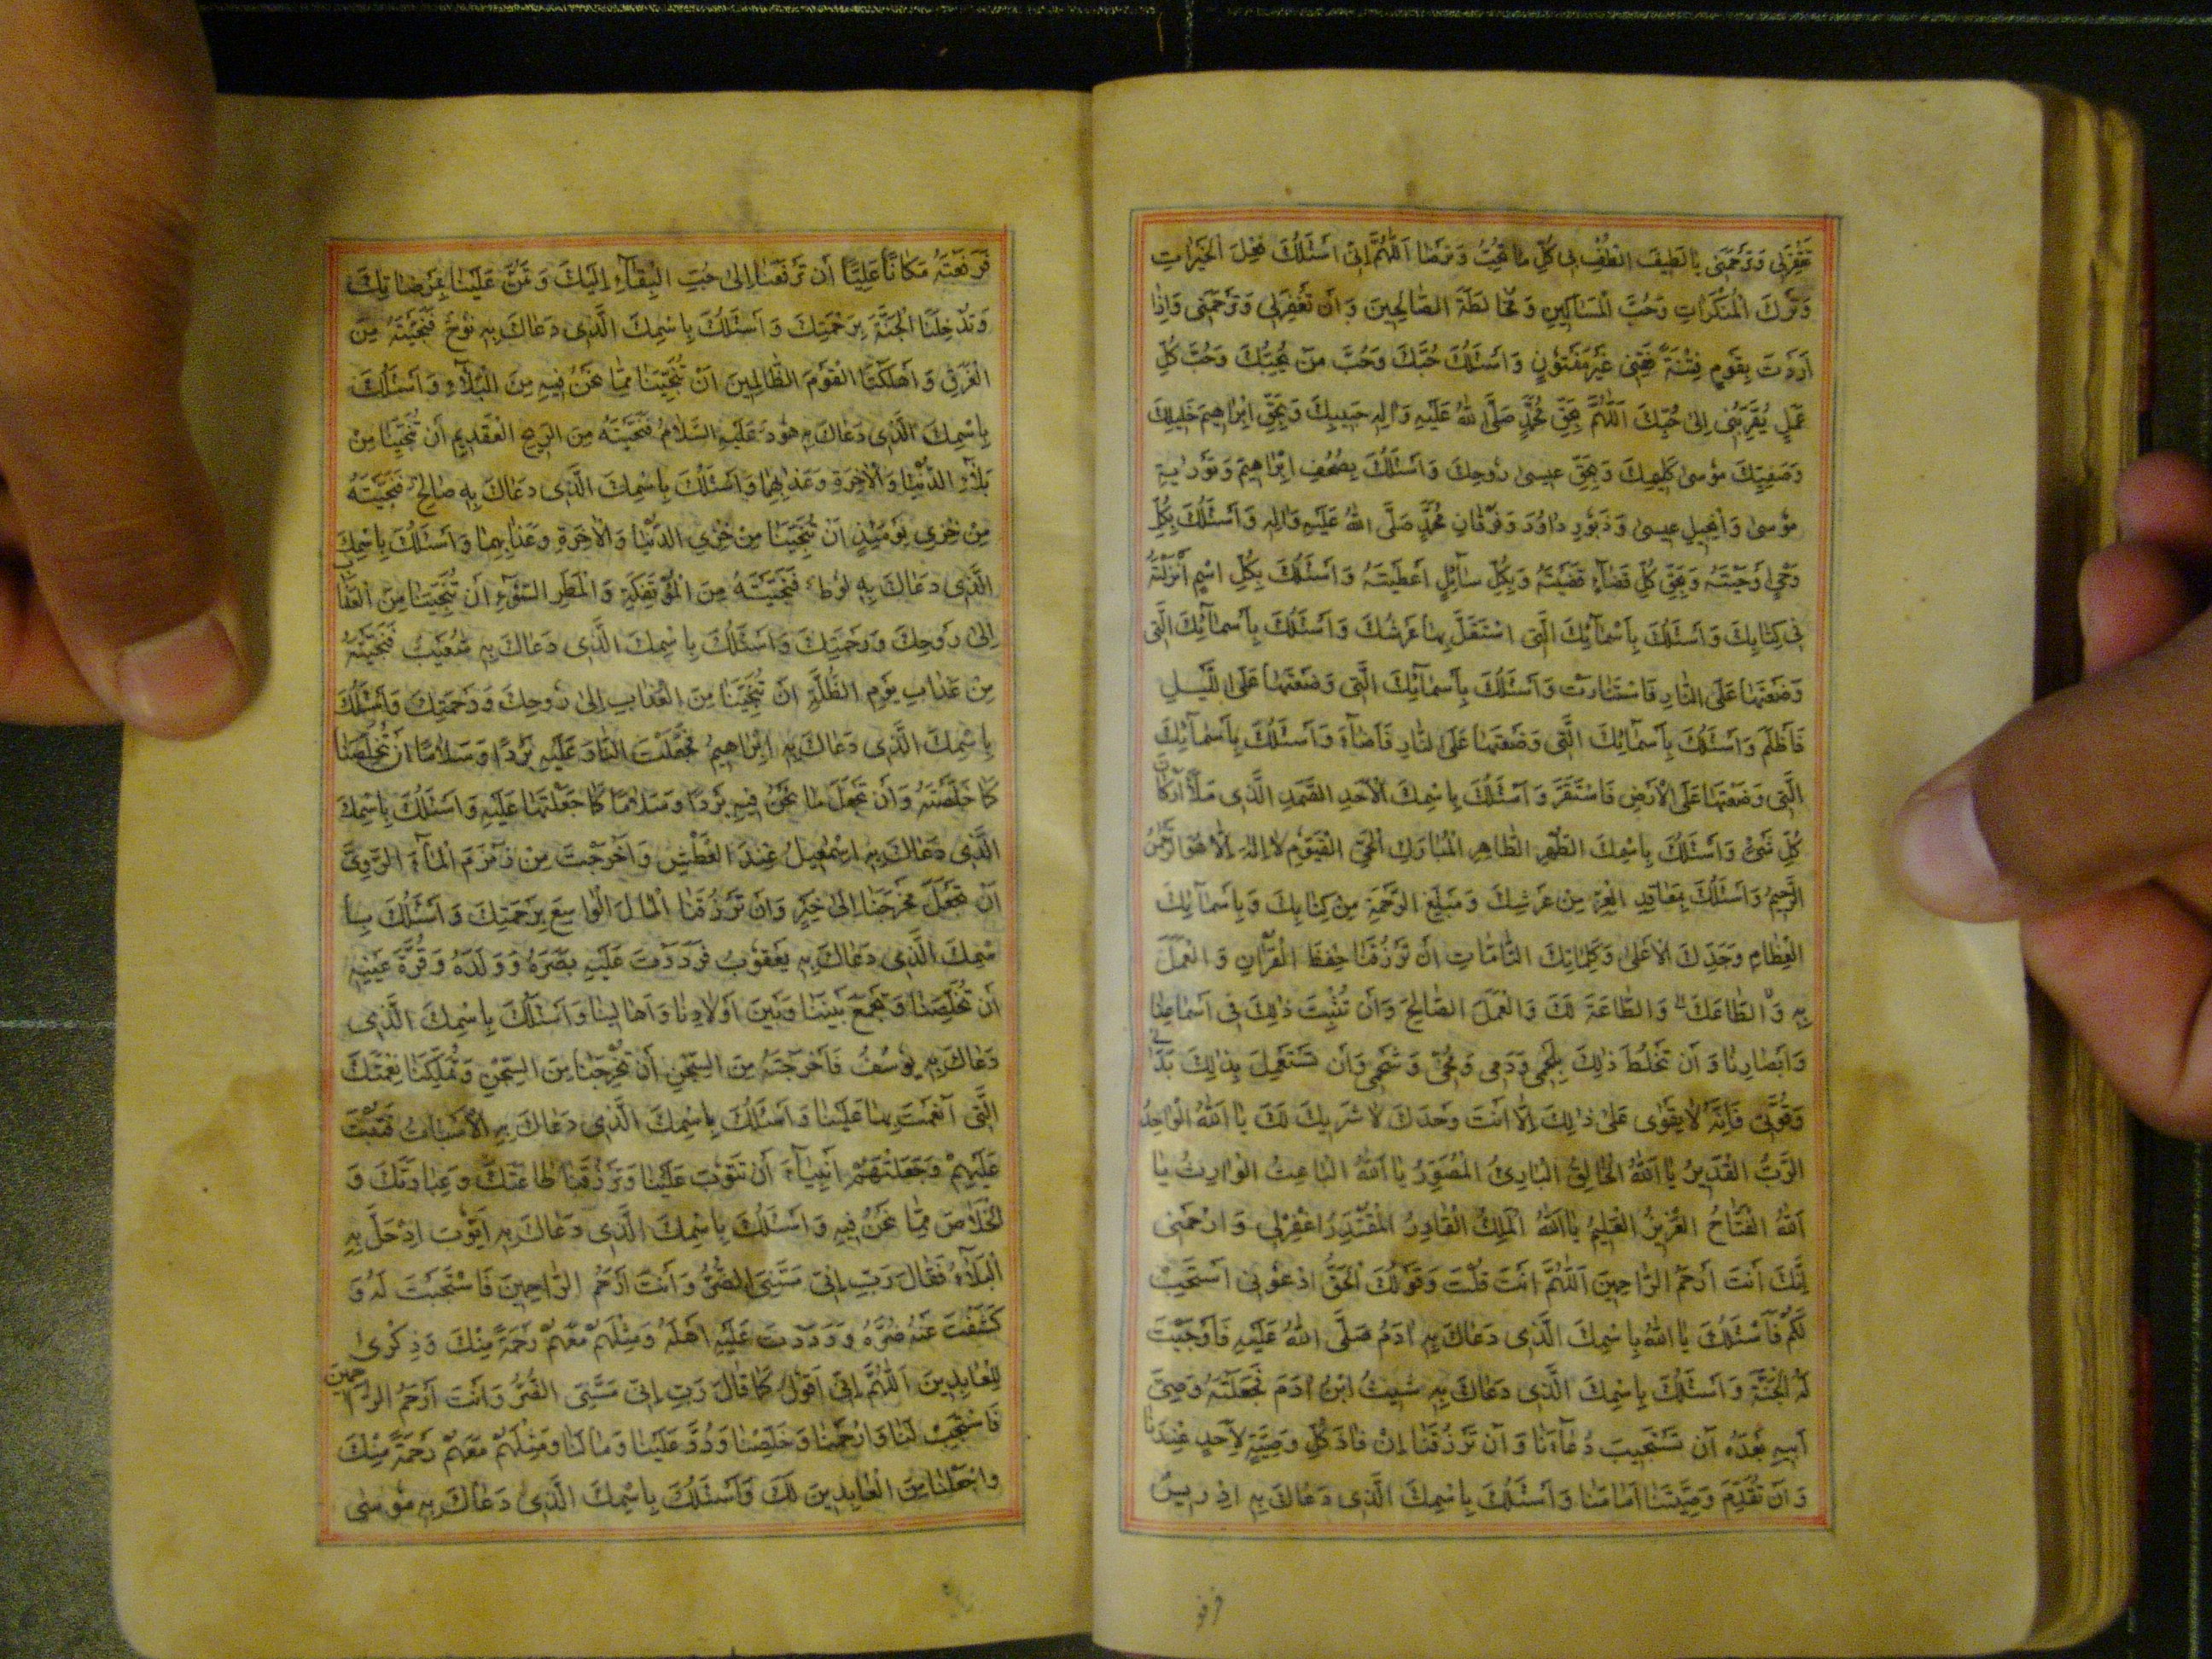 تَغْفِرَلِی وَتَرْحَمَنِی یٰا لَطِیفُ الْطُفْ لِی کُلِّ مٰا تُحِبُّ وَتَرْضٰا اَللّٰهُمَّ اِنِّی اَسْئَلُكَ فِعْلَ الْخَیْرٰاتِ
وَتَرْكَ الْمُنْكَرٰاتِ وَحُبَّ الْمَسٰاكِینِ وَمُخٰالَطَةَ الصّٰالِحِینَ وَاَنْ تَغْفِرَلِی وَتَرْحَمَنِی وَاِذٰا
اَرَدْتَ بِقَوْمٍ فِتْنَةً فَقِنِی غَیْرَ مَفْتُونٍ وَاَسْئَلُكَ حُبَّكَ وَحُبَّ مَنْ یُحِبُّكَ وَحُبَّ كُلِّ
عَمَلٍ یُقَرِّبُنِی اِلیٰ حُبِّكَ اَللّٰهُمَّ بِحَقِّ مُحَمَّدٍ صَلَّی اللهُ عَلَیْهِ وَاٰلِهِ حَبِیبِكَ وَبِحَقِّ اِبْرٰاهِیمَ خَلِیلِكَ
وَصَفِیِّكَ مُوسیٰ كَلِیمِكَ وَبِحَقِّ عِیسیٰ رُوحِكَ وَاَسْئَلُكَ بِصُحُفِ اِبْرٰاهِیمَ وَتَوْرٰیةِ
مُوسیٰ وَاِنْجِیلِ عِیسیٰ وَزَبُورِ دٰاوُدَ وَفُرْقٰانِ مُحَمَّدٍ صَلَّی اللهُ عَلَیْهِ وَاٰلِهِ وَاَسْئَلُكَ بِكُلِّ
وَحْیٍ اَوْحَیْتَهُ وَبِحَقِّ كُلِّ قَضٰاءٍ قَضَیْتَهُ وَبِكُلِّ سٰائِلٍ اَعْطَیْتَهُ وَاَسْئَلُكَ بِكُلِّ اسْمٍ اَنْزَلْتَهُ
فِی كِتٰابِكَ وَاَسْئَلُكَ بِاَسْمٰائِكَ الَّتِی اسْتَقَلَّ بِهٰا عَرْشُكَ وَاَسْئَلُكَ بِاَسْمٰائِكَ الَّتِی
وَضَعْتَهٰا عَلَی النّٰارِ فَاسْتَنٰارَتْ وَاَسْئَلُكَ بِاَسْمٰائِكَ الَّتِی وَضَعْتَهٰا عَلَی اللَّیْلِ
فَاَظْلَمَ وَاَسْئَلُكَ بِاَسْمٰائِكَ الَّتِی وَضَعْتَهٰا عَلَی النّٰارِ فَاَضٰاءَ وَاَسْئَلُكَ بِاَسْمٰائِكَ
الَّتِی وَضَعْتَهٰا عَلَی الْاَرْضِ فَاسْتَقَرَّ وَاَسْئَلُكَ بِاسْمِكَ الْاَحَدِ الصَّمَدِ الَّذِی مَلَأَ اَرْكٰانَ
كُلِّ شَیْءٍ وَاَسْئَلُكَ بِاسْمِكَ الطُّهْرِ الطّٰاهِرِ الْمُبٰارَكِ الْحَیِّ الْقَیُّومِ لٰا اِلٰهَ اِلّٰا هُوَ الرَّحْمٰنُ
الرَّحِیمُ وَاَسْئَلُكَ بِمَعٰاقِدِ الْعِزِّ مِنْ عَرْشِكَ وَمَبْلَغِ الرَّحْمَةِ مِنْ كِتٰابِكَ وَبِاَسْمٰائِكَ
الْعِظٰامِ وَجَدِّكَ الْاَعْلیٰ وَكَلِمٰاتِكَ التّٰامّٰاتِ اَنْ تَرْزُقَنٰا حِفْظَ الْقُرْاٰنِ وَالْعَمَلَ
بِهِ وَالطّٰاعَكَ وَالطّٰاعَةَ لَكَ وَالْعَمَلَ الصّٰالِحَ وَاَنْ تُثْبِتَ ذٰلِكَ فِی اَسْمٰاعِنٰا
وَاَبْصٰارِنٰا وَاَنْ تَخْلُطَ ذٰلِكَ بِلَحْمِی وَدَمِی وَمُخِّی وَشَحْمِی وَاَنْ تَسْتَعْمِلَ بِذٰلِكَ بَدَنِی
وَقُوَّتِی فَاِنَّهُ لٰا یَقْوٰی عَلیٰ ذٰلِكَ اِلّٰا اَنْتَ وَحْدَكَ لٰا شَرِیكَ لَكَ یٰا اَللهُ الْوٰاحِدُ
الرَّبُّ الْقَدِیرُ یٰا اَللهُ الْخٰالِقُ الْبٰارِئُ الْمُصَوِّرُ یٰا اَللهُ الْبٰاعِثُ الْوٰارِثُ یٰا
اَللهُ الْفَتّٰاحُ الْعَزِیزُ الْعَلِیمُ یٰا اَللهُ الْمَلِكُ الْقٰادِرُ الْمُقْتَدِرُ اغْفِرْلِی وَارْحَمْنِی
اِنَّكَ اَنْتَ اَرْحَمُ الرّٰاحِمِینَ اَللّٰهُمَّ اَنْتَ قُلْتَ وَقَوْلُكَ الْحَقُّ ادْعُونِی اَسْتَجِبْ
لَكُمْ فَاَسْئَلُكَ یٰا اَللهُ بِاسْمِكَ الَّذِی دَعٰاكَ بِهِ اٰدَمُ صَلَّی اللهُ عَلَیْهِ فَاَوْجَبْتَ
لَهُ الْجَنَّةَ وَاَسْئَلُكَ بِاسْمِكَ الَّذِی دَعٰاكَ بِهِ شِیثُ ابْنُ اٰدَمَ فَجَعَلْتَهُ وَصِیَّ
اَبِیهِ بَعْدَهُ اَنْ تَسْتَجِیبَ دُعٰاءَنٰا وَاَنْ تَرْزُقَنٰا اِنْفٰاذَ كُلِّ وَصِیَّةٍ لِاَحَدٍ عِنْدَنٰا
وَاَنْ تُقَدِّمَ وَصِیَّتَنٰا اَمٰامَنٰا وَاَسْئَلُكَ بِاسْمِكَ الَّذِی دَعٰاكَ بِهِ اِدْرِیسُ
فرفع
فَرَفَعْتَهُ مَكٰانًا عَلِیًّا اَنْ تَرْفَعَنٰا اِلیٰ حُبِّ الْبِقٰاءِ اِلَیْكَ وَتَمُنَّ عَلَیْنٰا بِمَرْضٰاتِكَ
وَتُدْخِلَنَا الْجَنَّةَ بِرَحْمَتِكَ وَاَسْئَلُكَ بِاسْمِكَ الَّذِی دَعٰاكَ بِهِ نُوحٌ فَنَجَّیْتَهُ مِنَ
الْغَرَقِ وَاَهْلَكْتَ الْقَوْمَ الظّٰالِمِینَ اَنْ تُنَجِّیَنٰا مِمّٰا نَحْنُ فِیهِ مِنَ الْبَلٰاءِ وَاَسْئَلُكَ
بِاسْمِكَ الَّذِی دَعٰاكَ بِهِ هُودٌ عَلَیْهِ السَّلٰامُ فَنَجَّیْتَهُ مِنَ الرِّیحِ الْعَقِیمِ اَنْ تُنَجِّیَنٰا مِنْ
بَلٰاءِ الدُّنْیٰا وَالْاٰخِرَةِ وَعَذٰابِهِمٰا وَاَسْئَلُكَ بِاسْمِكَ الَّذِی دَعٰاكَ بِهِ صٰالِحٌ فَنَجَّیْتَهُ
مِنْ خِزْیِ یَوْمَئِذٍ اَنْ تُنَجِّیَنٰا مِنْ خِزْیِ الدُّنْیٰا وَالْاٰخِرَةِ وَعَذٰابِهِمٰا وَاَسْئَلُكَ بِاسْمِكَ
الَّذِی دَعٰاكَ بِهِ لُوطٌ فَنَجَّیْتَهُ مِنَ الْمُؤْتَفِكَةِ وَالْمَطَرِ السَّوْءِ اَنْ تُنَجِّیَنٰا مِنَ الْعَذٰابِ
اِلیٰ رَوْحِكَ وَرَحْمَتِكَ وَاَسْئَلُكَ بِاسْمِكَ الَّذِی دَعٰاكَ بِهِ شُعَیْبٌ فَنَجَّیْتَهُ
مِنْ عَذٰابِ یَوْمِ الظُّلَّةِ اَنْ تُنَجِّیَنٰا مِنَ الْعَذٰابِ اِلیٰ رَوْحِكَ وَرَحْمَتِكَ وَاَسْئَلُكَ
بِاسْمِكَ الَّذِی دَعٰاكَ بِهِ اِبْرٰاهِیمُ فَجَعَلْتَ النّٰارَ عَلَیْهِ بَرْدًا وَسَلٰامًا اَنْ تُخَلِّصَنٰا
كَمٰا خَلَّصْتَهُ وَاَنْ تَجْعَلَ مٰا نَحْنُ فِیهِ بَرْدًا وَسَلٰامًا كَمٰا جَعَلْتَهٰا عَلَیْهِ وَاَسْئَلُكَ بِاسْمِكَ
الَّذِی دَعٰاكَ بِهِ اِسْمٰعِیلُ عِنْدَ الْعَطَشِ وَاَخْرَجْتَ مِنْ زَمْزَمَ الْمٰاءَ الرَّوِیَّ
اَنْ تَجْعَلَ مَخْرَجَنٰا اِلیٰ خَیْرٍ وَاَنْ تَرْزُقَنٰا الْمٰالَ الْوٰاسِعَ بِرَحْمَتِكَ وَاَسْئَلُكَ بِا
سْمِكَ الَّذِی دَعٰاكَ بِهِ یَعْقُوبُ فَرَدَدْتَ عَلَیْهِ بَصَرَهُ وَوَلَدَهُ وَقُرَّةَ عَیْنِهِ
اَنْ تُخَلِّصَنٰا وَتَجْمَعَ بَیْنَنٰا وَبَیْنَ اَوْلٰادِنٰا وَاَهٰالِینٰا وَاَسْئَلُكَ بِاسْمِكَ الَّذِی
دَعٰاكَ بِهِ یُوسُفُ فَاَخْرَجْتَهُ مِنَ السِّجْنِ اَنْ تُخْرِجَنٰا مِنَ السِّجْنِ وَتُمَلِّكَنٰا نِعْمَتَكَ
الَّتِی اَنْعَمْتَ بِهٰا عَلَیْنٰا وَاَسْئَلُكَ بِاسْمِكَ الَّذِی دَعٰاكَ بِهِ الْاَسْبٰاطُ فَتُبْتَ
عَلَیْهِمْ وَجَعَلْتَهُمْ اَنْبِیٰاءَ اَنْ تَتُوبَ عَلَیْنٰا وَتَرْزُقَنٰا طٰاعَتَكَ وَعِبٰادَتَكَ وَ
الْخَلٰاصَ مِمّٰا نَحْنُ فِیهِ وَاَسْئَلُكَ بِاسْمِكَ الَّذِی دَعٰاكَ بِهِ اَیُّوبُ اِذْ حَلَّ بِهِ
الْبَلٰاءُ فَقٰالَ رَبِّ اِنِّی مَسَّنِیَ الضُّرُّ وَاَنْتَ اَرْحَمُ الرّٰاحِمِینَ فَاسْتَجَبْتَ لَهُ وَ
كَشَفْتَ عَنْهُ ضُرَّهُ وَرَدَدْتَ عَلَیْهِ اَهْلَهُ وَمِثْلَهُمْ مَعَهُمْ رَحْمَةً مِنْكَ وَذِكْریٰ
لِلْعٰابِدِینَ اَللّٰهُمَّ اِنِّی اَقُولُ كَمٰا قٰالَ رَبِّ اِنِّی مَسَّنِیَ الضُّرُّ وَاَنْتَ اَرْحَمُ الرّٰاحِمِینَ
فَاسْتَجِبْ لَنٰا وَارْحَمْنٰا وَخَلِّصْنٰا وَرُدَّ عَلَیْنٰا وَمٰا لَنٰا وَمِثْلَهُمْ مَعَهُمْ رَحْمَةً مِنْكَ
وَاجْعَلْنٰا مِنَ الْعٰابِدِینَ لَكَ وَاَسْئَلُكَ بِاسْمِكَ الَّذِی دَعٰاكَ بِهِ مُوسٰی